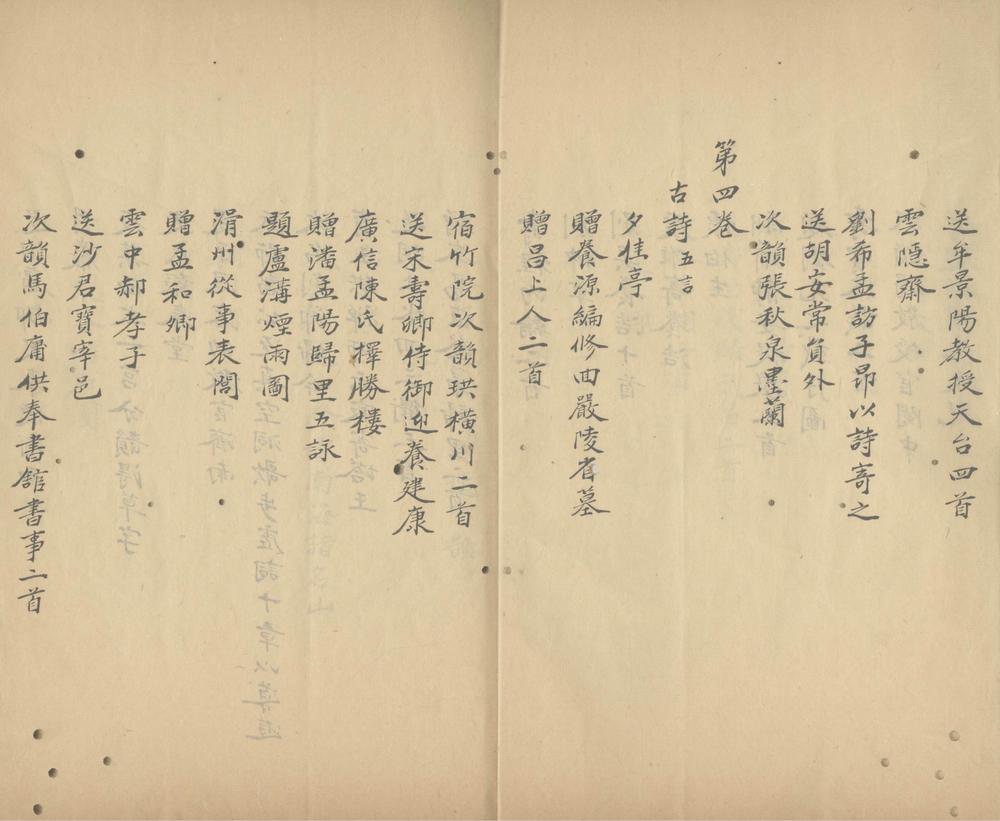 送牟景陽教授天台四首
雲隱齋
劉希孟訪子昂以詩寄之
送胡安常負外
次韻張秋泉墨蘭
第四卷
古詩五言
夕佳亭
贈養源編修回嚴陵省墓
贈昌上人二首
宿竹院次韻珙橫川二首
送宋壽卿侍御迎養建康
廣信陳氏擇勝樓
贈潘孟陽歸里五詠
題盧溝煙雨圖
涓州從事表閭
贈孟和卿
雲中郝孝子
送沙君寶宰邑
次韻馬伯庸供奉書館書事二首